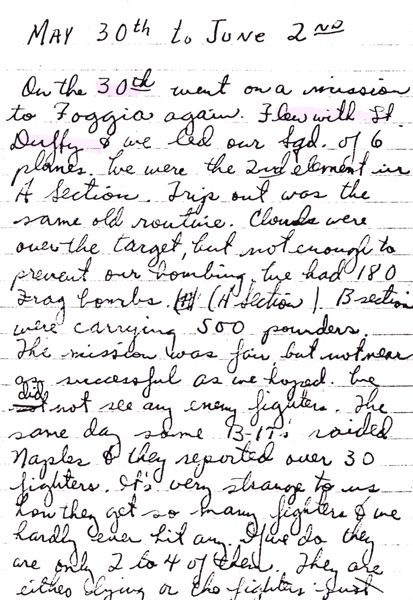 MAY 30th to JUNE 2ND
On the 30th went on a mission
to Foggia again. Flew with Lt.
Duffy & we led our Sqd. of 6
planes. We were the 2nd element in
A Section. Trip out was the
same old routine. Clouds were
over the target, but not enough to
prevent our bombing. We had 180
Frag bombs. (A Section). B section
were carrying 500 pounders.
The mission was fair but not near
as successful as we hoped. We
did not see any enemy fighters. The
same day some B-17's raided
Naples & they reported over 30
fighters. It's very strange to us
how they get so many fighters & we
hardly ever hit any. If we do they
are only 2 to 4 of them. They are
either lying or the fighters just